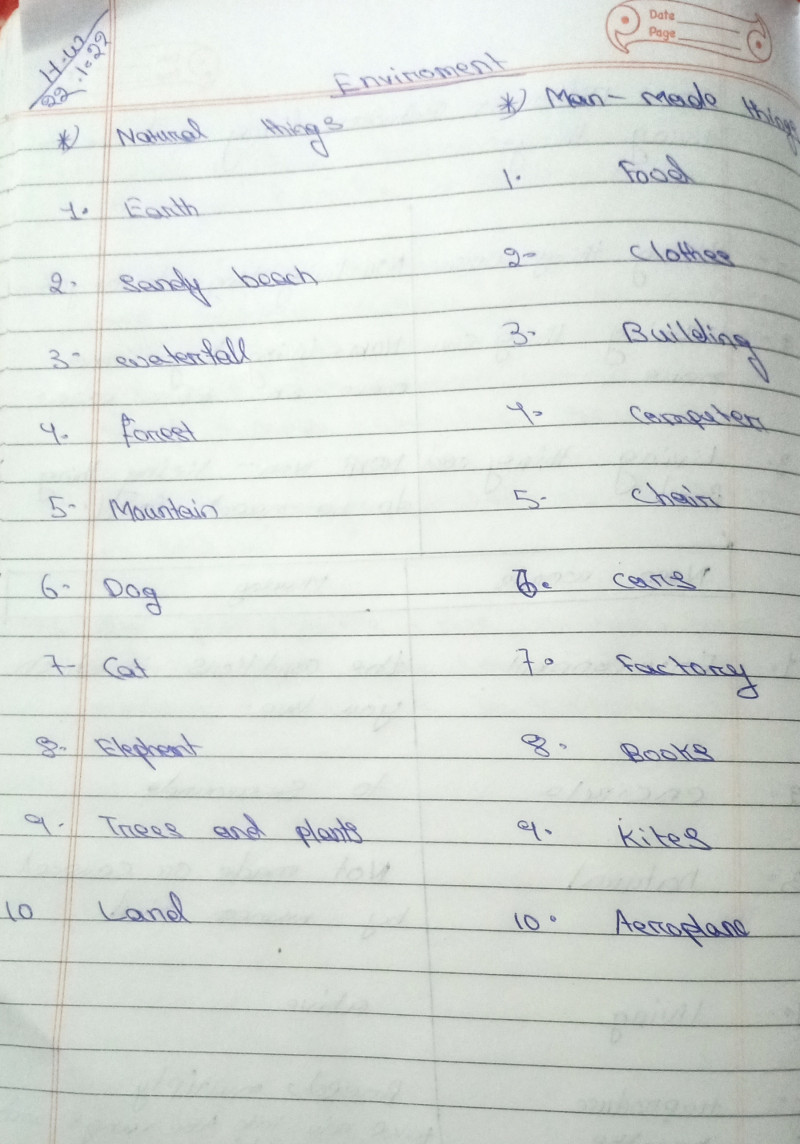 Date
Page
H.W
22.1.22
Enviroment
*) Natural things
1. Earth
2. Sandy beach
3- waterfall
4. forest
5- Mountain
6- Dog
7- Cat
8- Elephant
9. Trees and plants
10 Land
*) Man-made things
1. Food
2- Clothes
3. Building
4- Computer
5- Chair
6. cars
7. factory
8. Books
9. Kites
10. Aeroplane